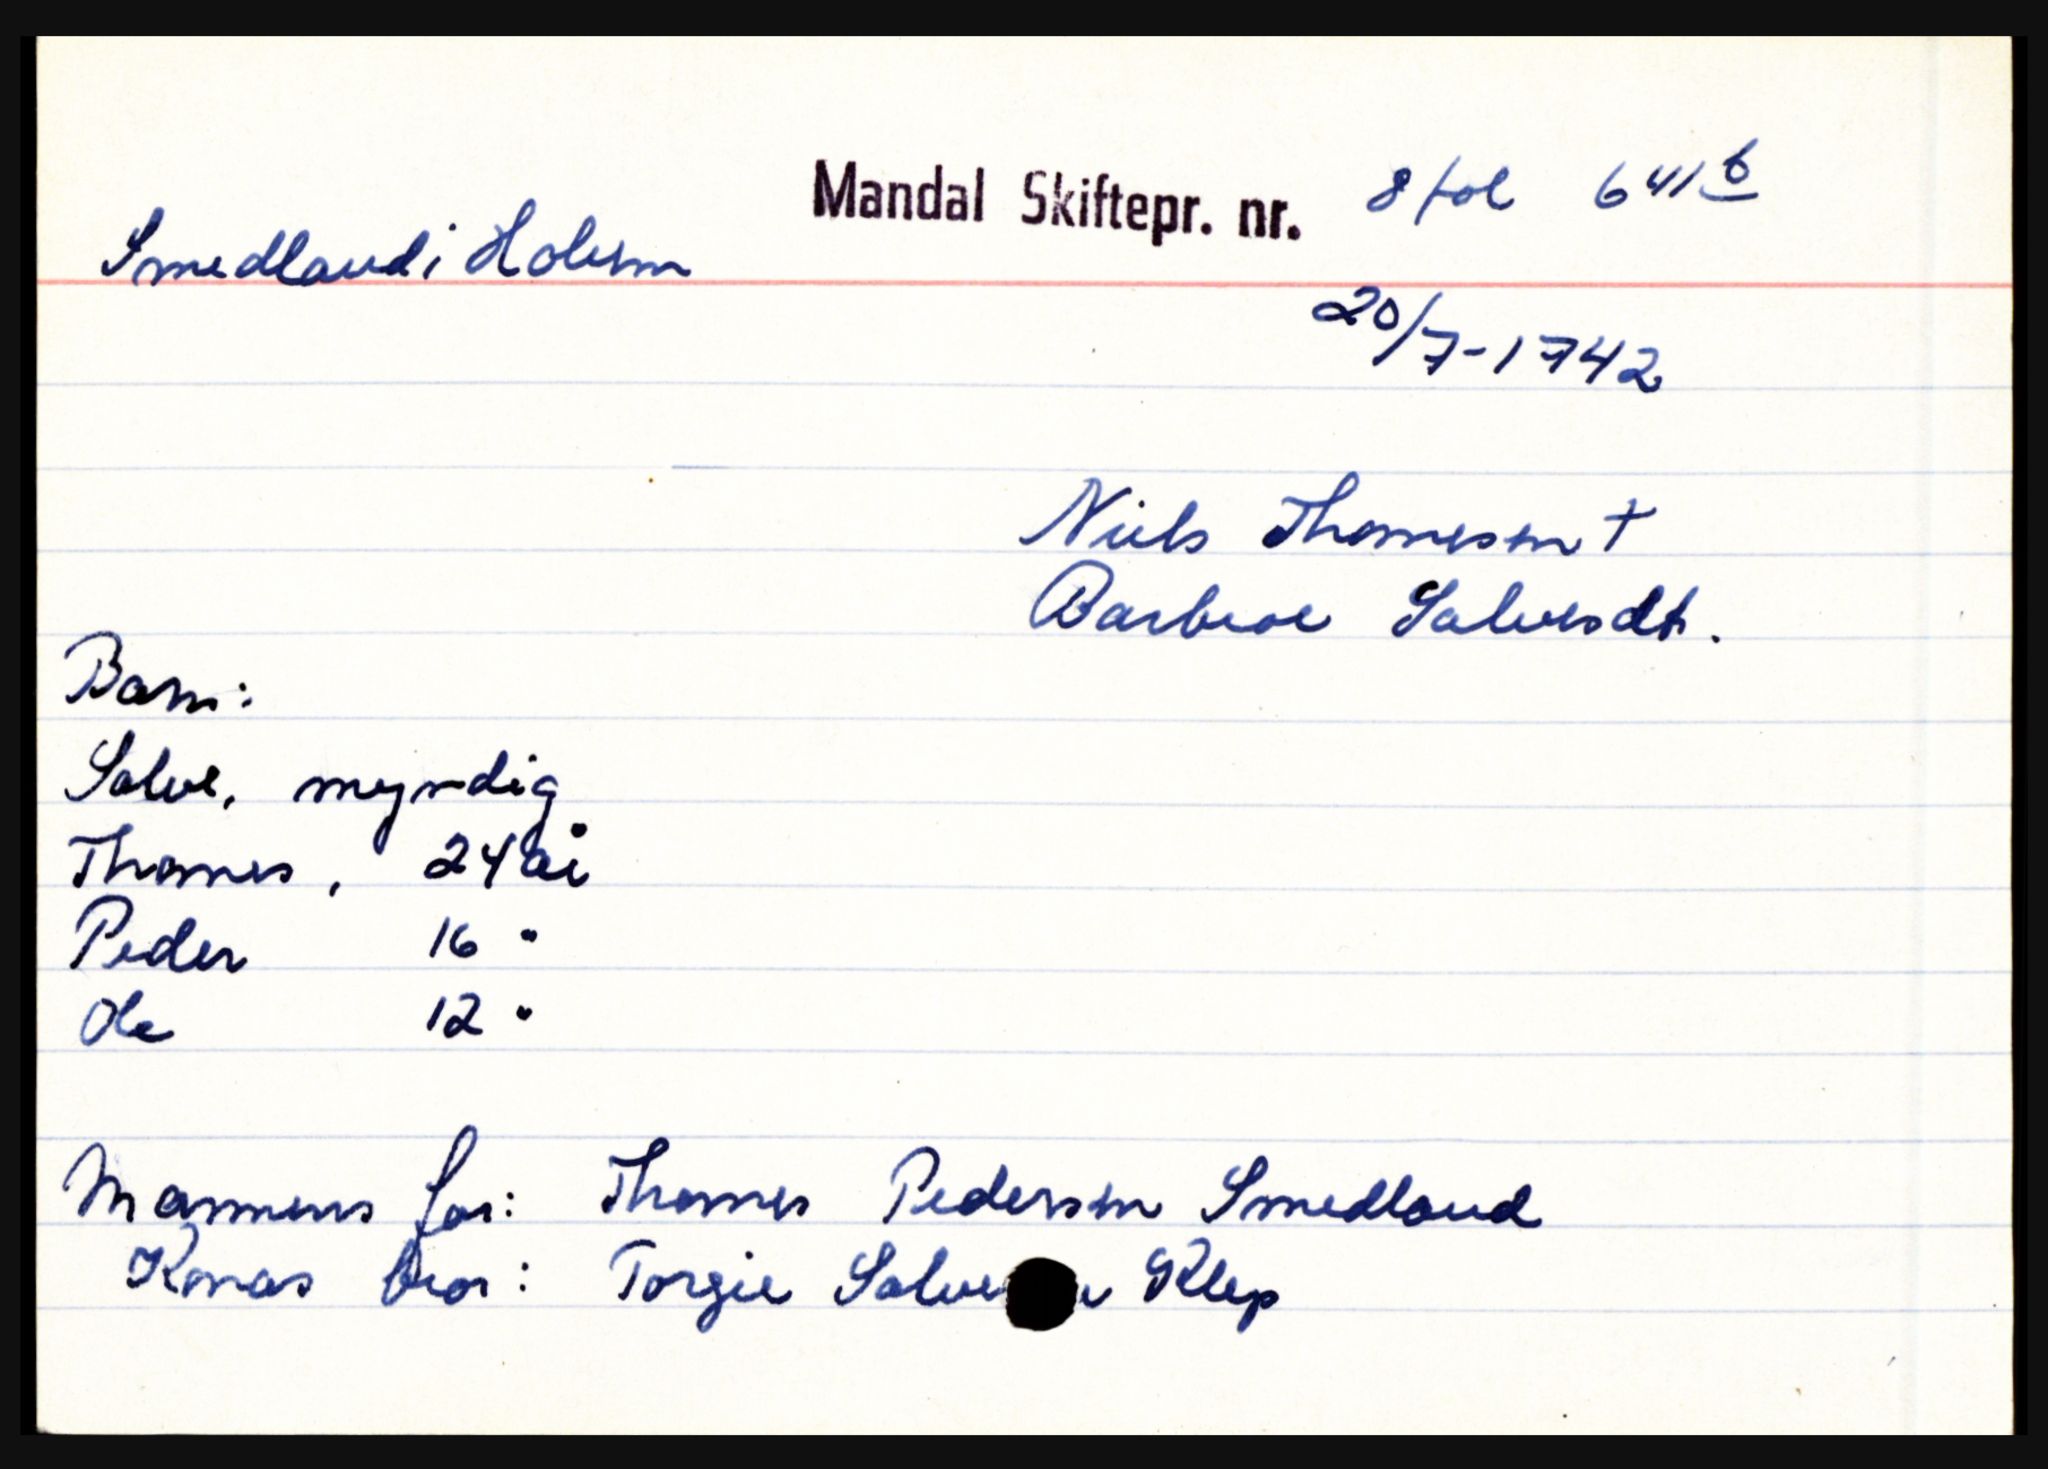 Mandal Skiftepr. nr. 8 fol 641 b
Smedland i Holum
20/7-1742
Niels Thomesen †
Barbroe Salvesdt.
Barn:
Salve, myndig
Thomes, 24 år
Peder 16 "
Ole 12 "
Mannens far: Thomes Pedersen Smedland
Konas bror: Torgie Klep